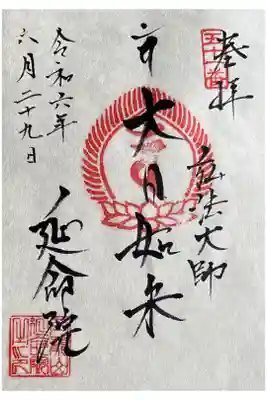 奉拝
弘法大師
大日如来
延命院
令和六年
六月二十九日